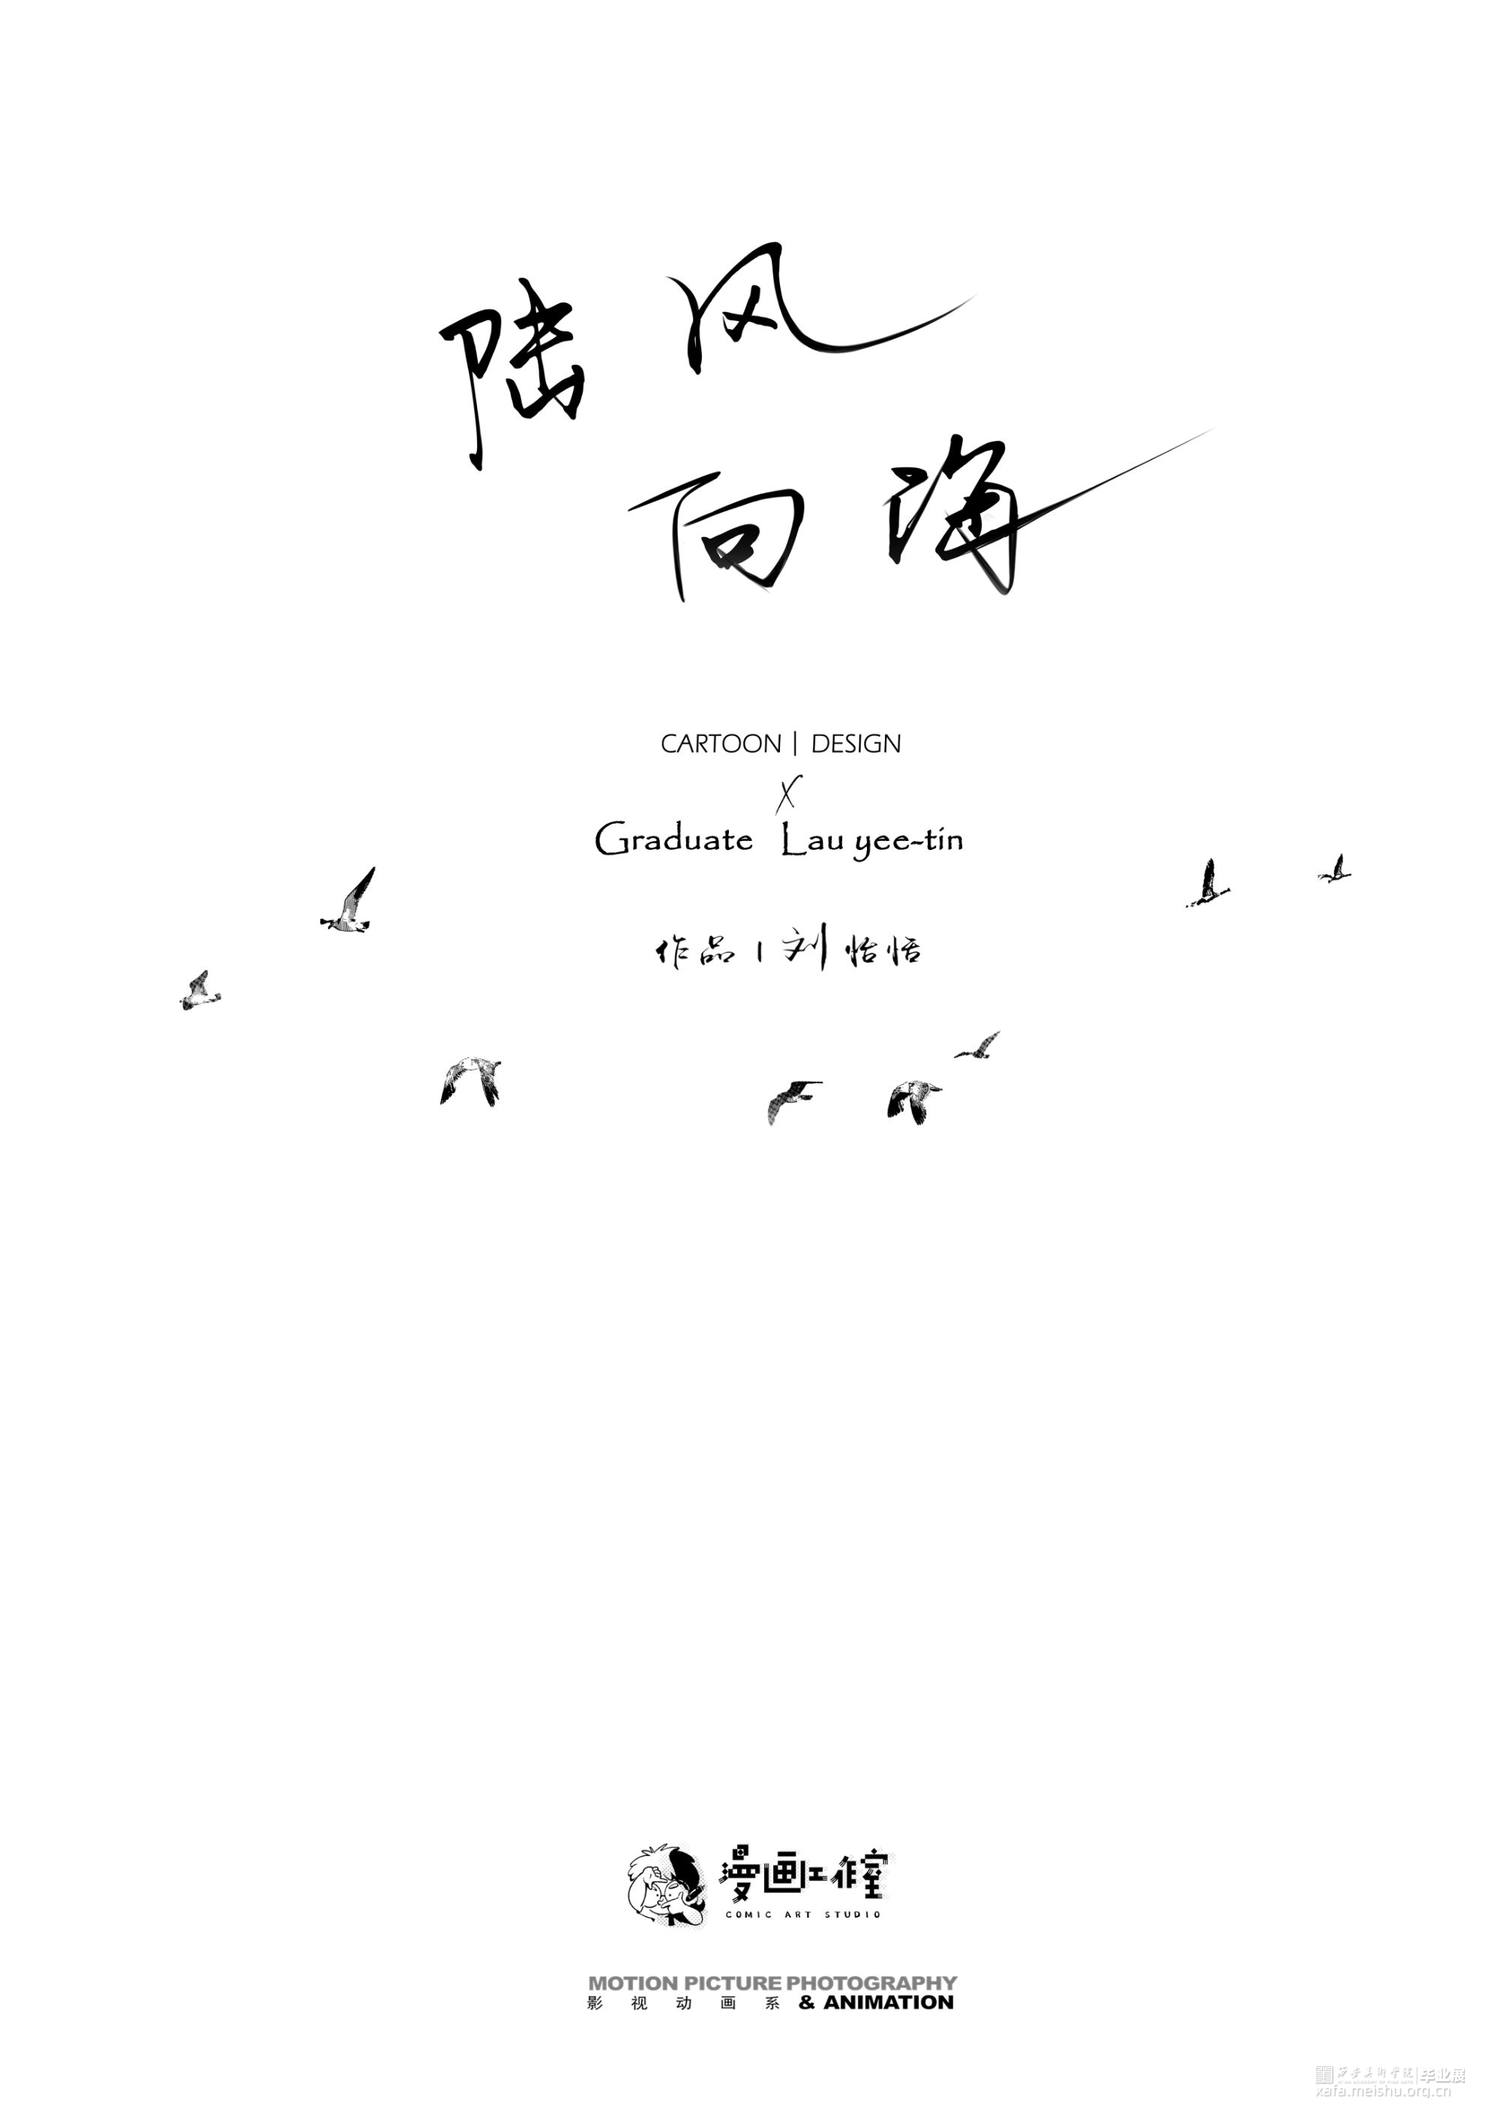 陆风
向海
CARTOON | DESIGN
X
Graduate Lau yee-tin
作品 | 刘怡恬
漫画工作室
COMIC ART STUDIO
MOTION PICTURE PHOTOGRAPHY
影视动画系 & ANIMATION
西安美术学院 | 毕业展
xafa.meishu.org.cn